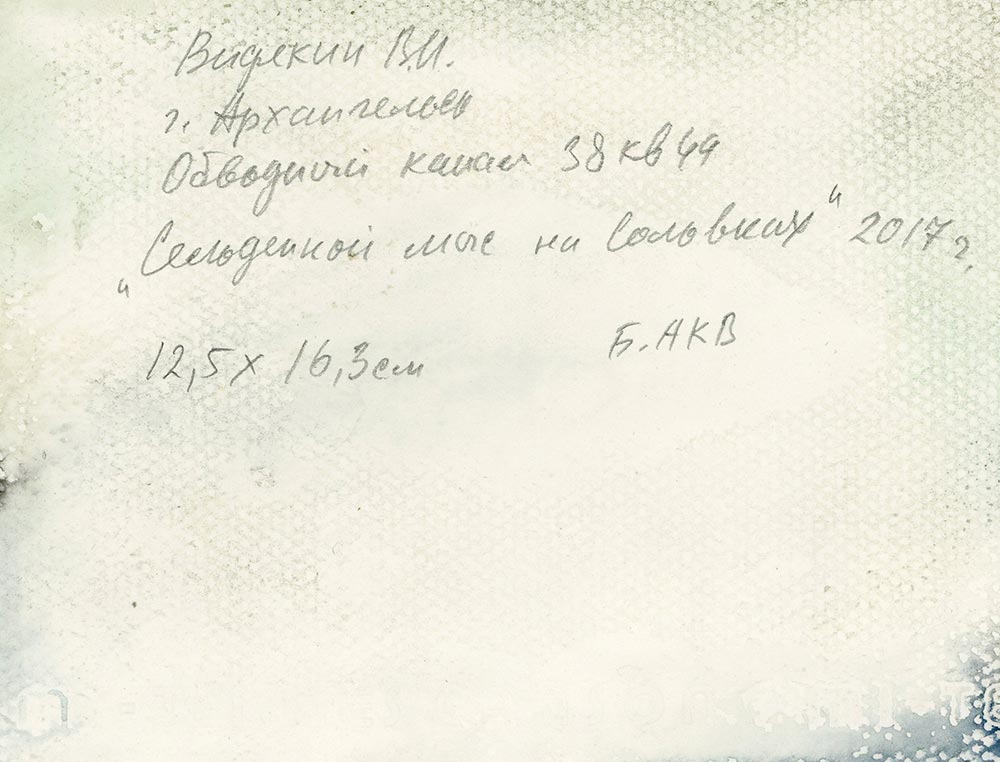 Видякин В.И.
г. Архангельск
Обводный канал 38 кв 49
"Сельдяной мыс на Соловках" 2017 г.
12,5 х 16,3 см Б. АКВ